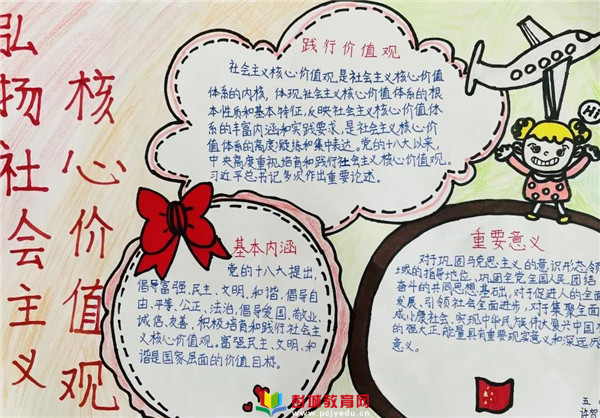 弘扬社会主义
核心价值观
践行价值观
社会主义核心价值观是社会主义核心价值
体系的内核，体现社会主义核心价值体系的根
本性质和基本特征，反映社会主义核心价值体
系的丰富内涵和实践要求，是社会主义核心价
值体系的高度凝练和集中表达。党的十八大以来，
中央高度重视培育和践行社会主义核心价值观。
习近平总书记多次作出重要论述。
Hi
基本内涵
党的十八大提出，
倡导富强、民主、文明、和谐，倡导自
由、平等、公正、法治，倡导爱国、敬业、
诚信、友善，积极培育和践行社会主
义核心价值观。富强、民主、文明、和
谐是国家层面的价值目标。
重要意义
对于巩固马克思主义的意识形态领
域的指导地位、巩固全党全国人民团结
奋斗的共同思想基础，对于促进人的全面
发展、引领社会全面进步，对于集聚全面
成小康社会、实现中华民族伟大复兴中国
的强大正能量具有重要现实意义和深远
意义。
五
许智
彭城教育网
www.pcjyedu.cn